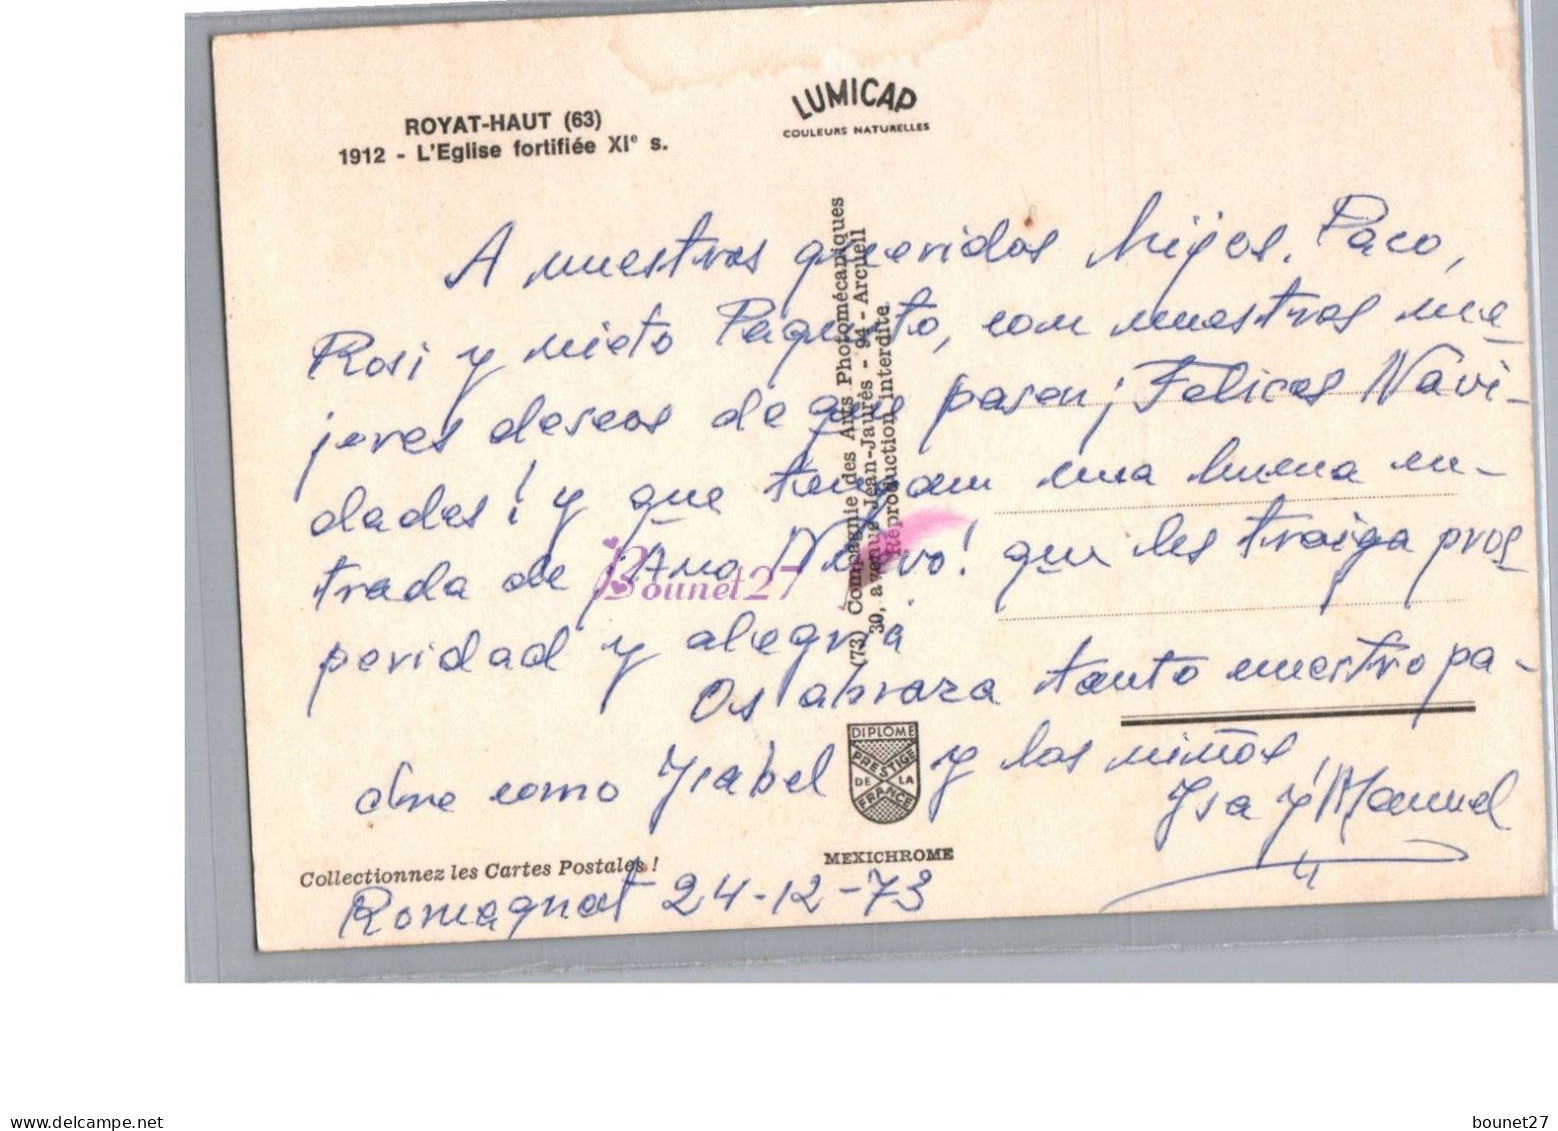 ROYAT-HAUT (63)
1912 - L'Eglise fortifiée XIe s.
LUMICAP
COULEURS NATURELLES
A nuestros queridos hijos. Paco,
Rosi y nieto Paquito, con nuestros me-
jores deseos de que pasen ¡Felices Navi-
dades! y que tengan una buena en-
trada de ¡Ano Nuevo! que les traiga pros
peridad y alegria
Os abraza tanto nuestro pa-
dre como Ysabel y los niños,
Ysa y Manuel
(73) Compagnie des Arts Photomécaniques
30, avenue Jean-Jaurès - 94 - Arcueil
Reproduction interdite
DIPLOME
PRESTIGE
DE LA
FRANCE
MEXICHROME
Collectionnez les Cartes Postales !
Romagnat 24-12-73
Bounet27
www.delcampe.net
bounet27